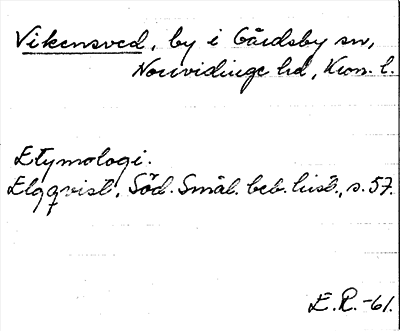 Vikensved, by i Gårdsby sn,
Norrvidinge hd, Kron. l.
Etymologi.
Elgqvist, Söd. Smål. beb. hist., s. 57.
E. R. -61.